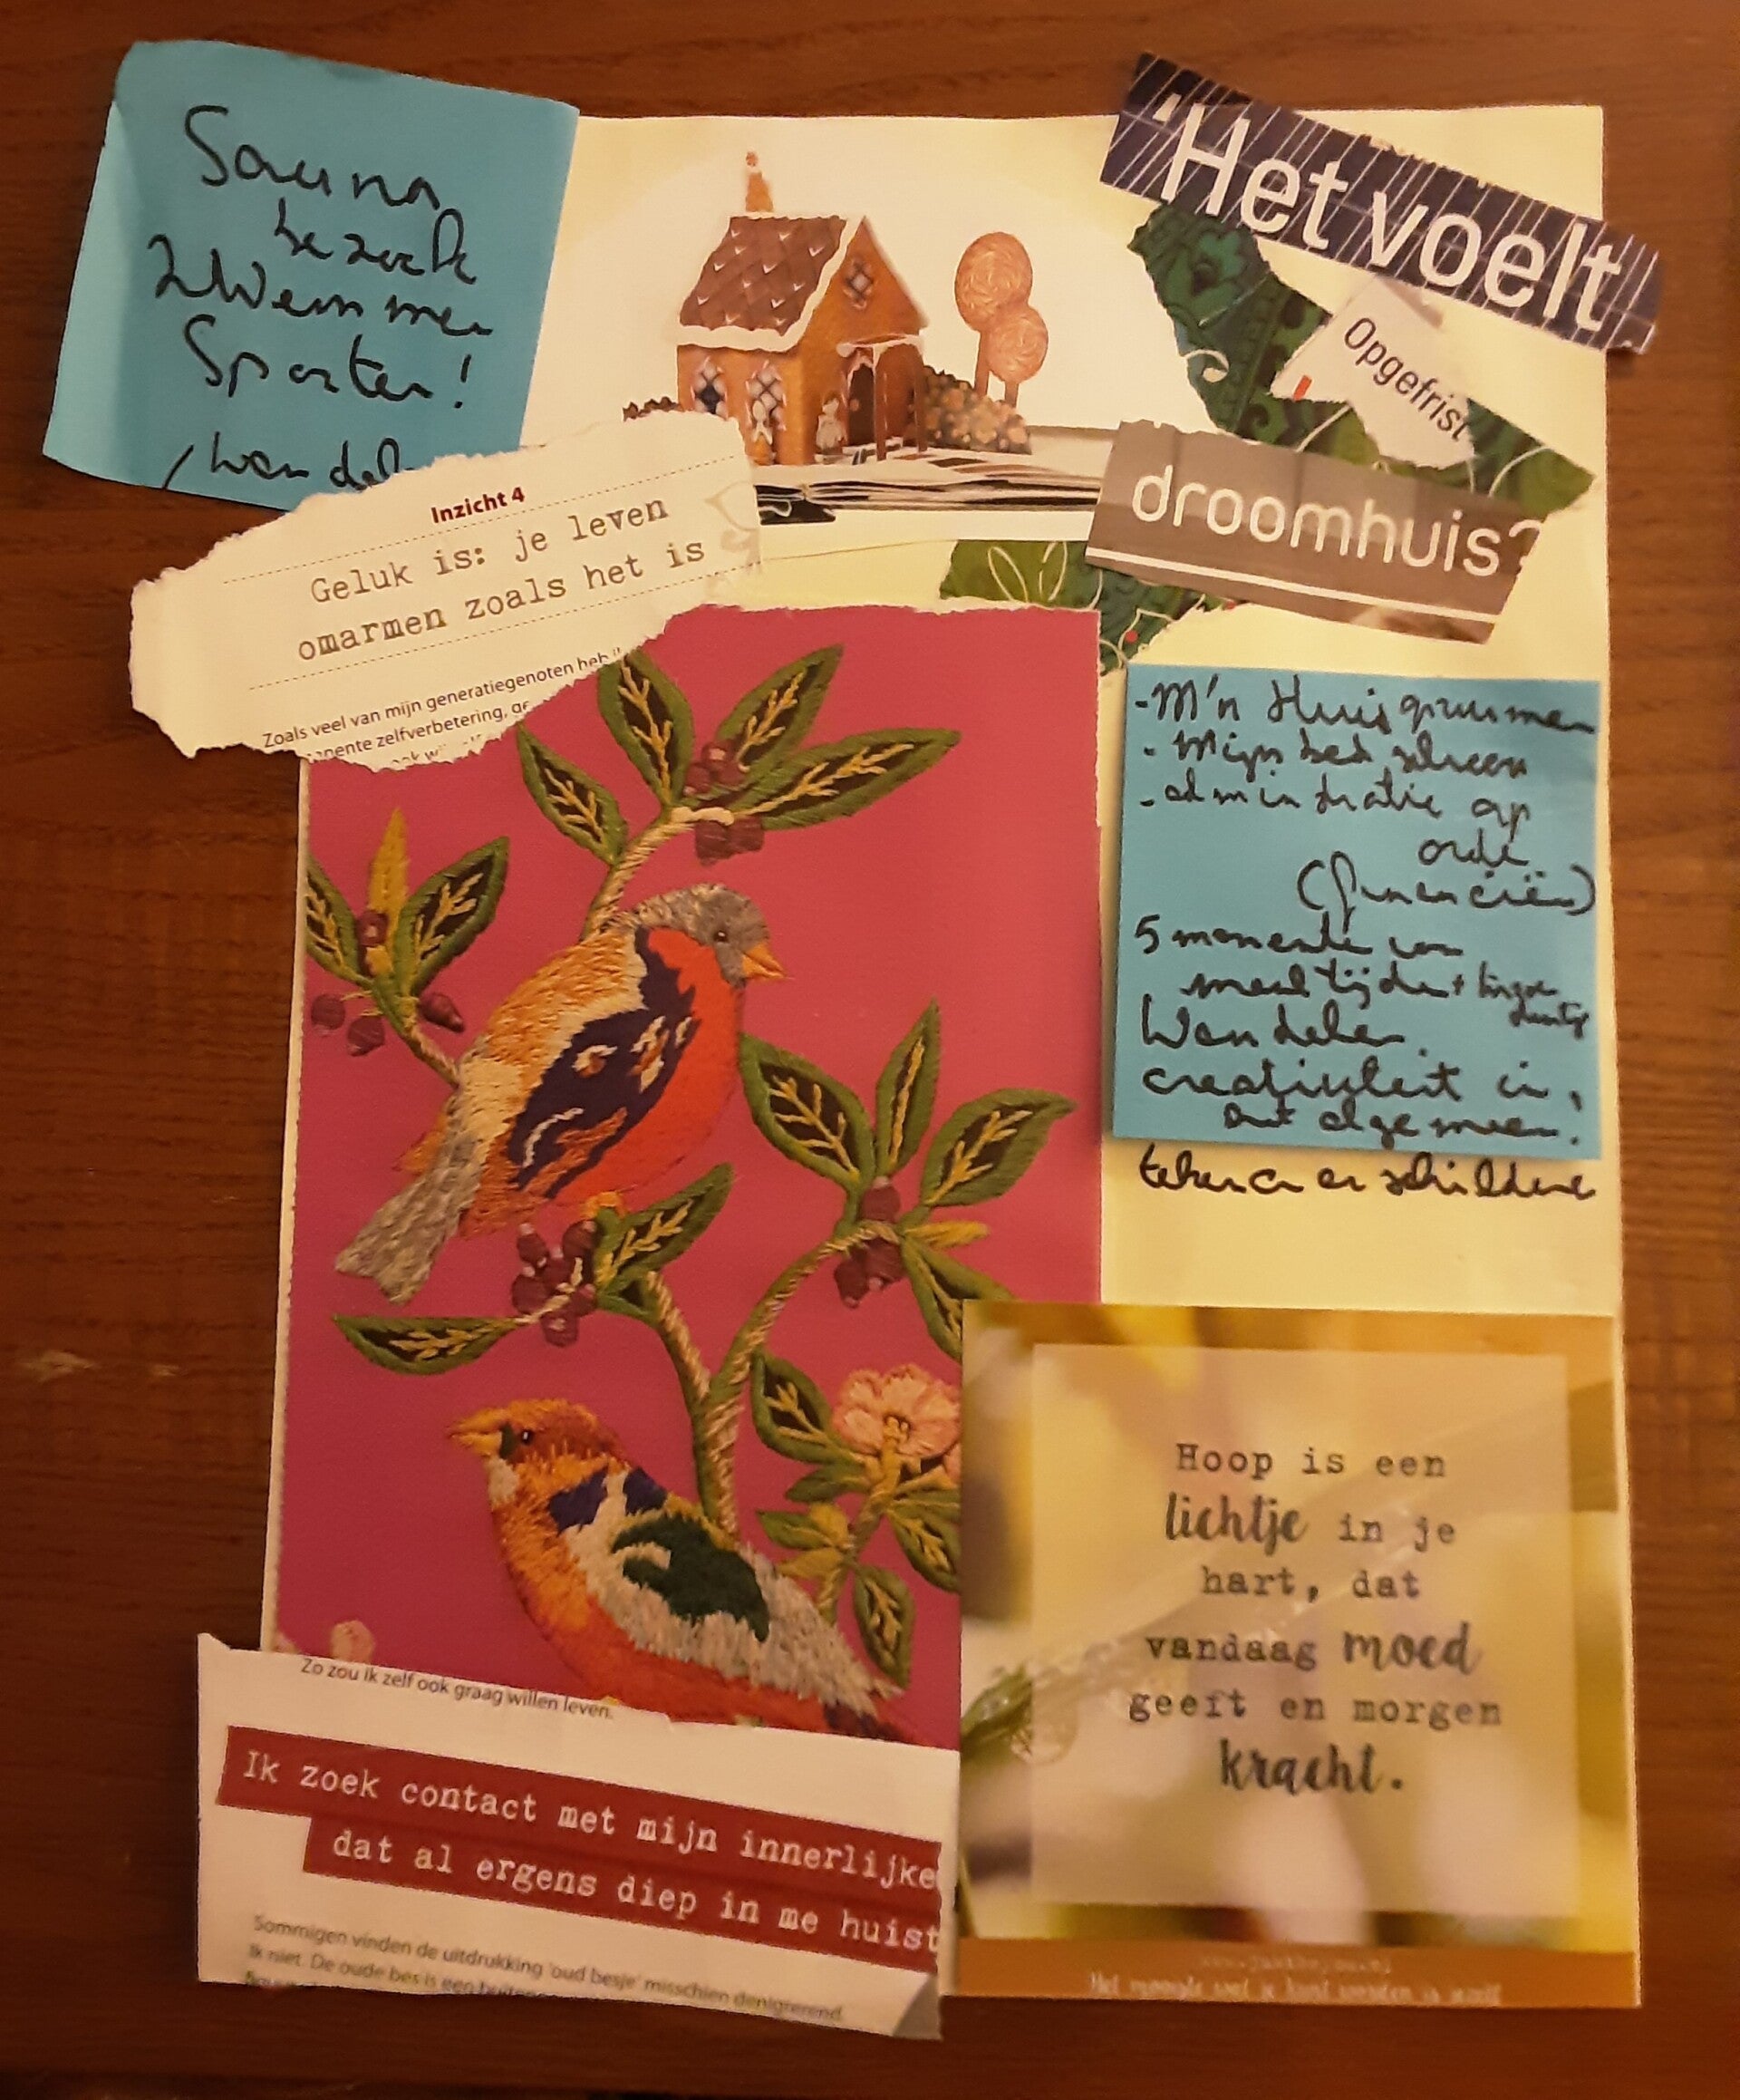 Sauna
bezoek
Zwemmen
Sporten!
/wandel
'Het voelt
Opgefrist
droomhuis?
Inzicht 4
Geluk is: je leven
omarmen zoals het is
Zoals veel van mijn generatiegenoten heb
nente zelfverbetering,
- M'n Huis
- Mijn bed
- administratie op
orde
(financiën)
5 momenten van
maaltijden +
Wandelen
creativiteit in
algemeen.
tekenen en schilderen
Hoop is een
lichtje in je
hart, dat
vandaag moed
geeft en morgen
kracht.
Zo zou ik zelf ook graag willen leven.
Ik zoek contact met mijn innerlijke
dat al ergens diep in me huist
Sommigen vinden de uitdrukking 'oud besje' misschien denigrerend.
Ik niet. De oude bes is een